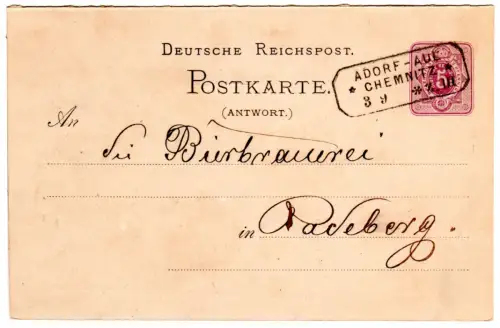 DEUTSCHE REICHSPOST.
POSTKARTE.
(ANTWORT.)
ADORF-AUE
* CHEMNITZ *
3 9
An
die Bierbrauerei
in Radeberg.